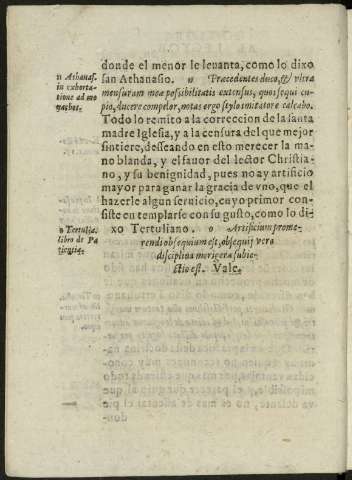 donde el menor le leuanta, como lo dixo
san Athanasio. n Præcedentes duco, & vltra
mensuram meæ possibilitatis extensus, quos sequi cu-
pio, ducere compelor, notas ergo stylo imitatore calcabo.
Todo lo remito a la correccion de la santa
madre Iglesia, y a la censura del que mejor
sintiere, desseando en esto merecer la ma-
no blanda, y el fauor del lector Christia-
no, y su benignidad, pues no ay artificio
mayor para ganar la gracia de vno, que el
hazerle algun seruicio, cuyo primor con-
siste en templarse con su gusto, como lo di-
xo Tertuliano. o Artificium prome-
rendi obsequium est, obsequij vero
disciplina morigera subie-
ctio est. Vale.
n Athanas.
in exhorta-
tione ad mo
nachos.
o Tertulia.
libro de Pa
tientia.